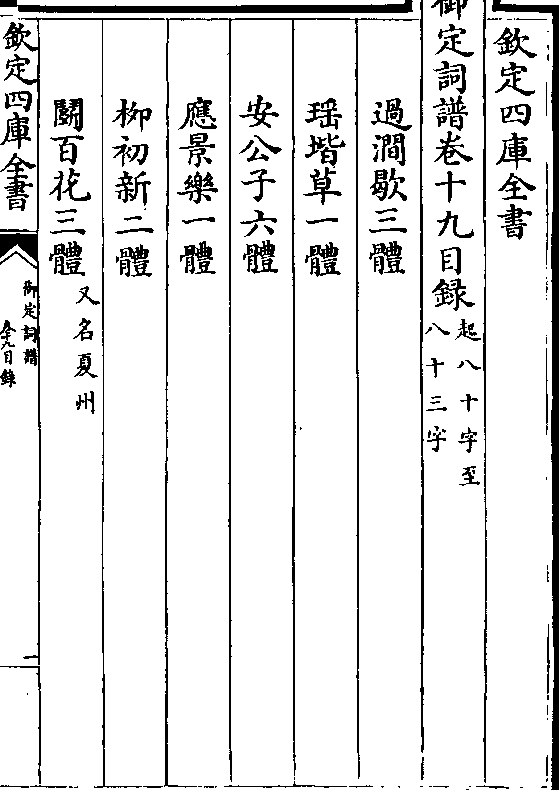 欽定四庫全書
御定詞譜卷十九目録起八十字至八十三字
過澗歇三體
瑶堦草一體
安公子六體
應景樂一體
柳初新二體
鬬百花三體又名夏州
欽定四庫全書
御定詞譜
卷十九目錄
一